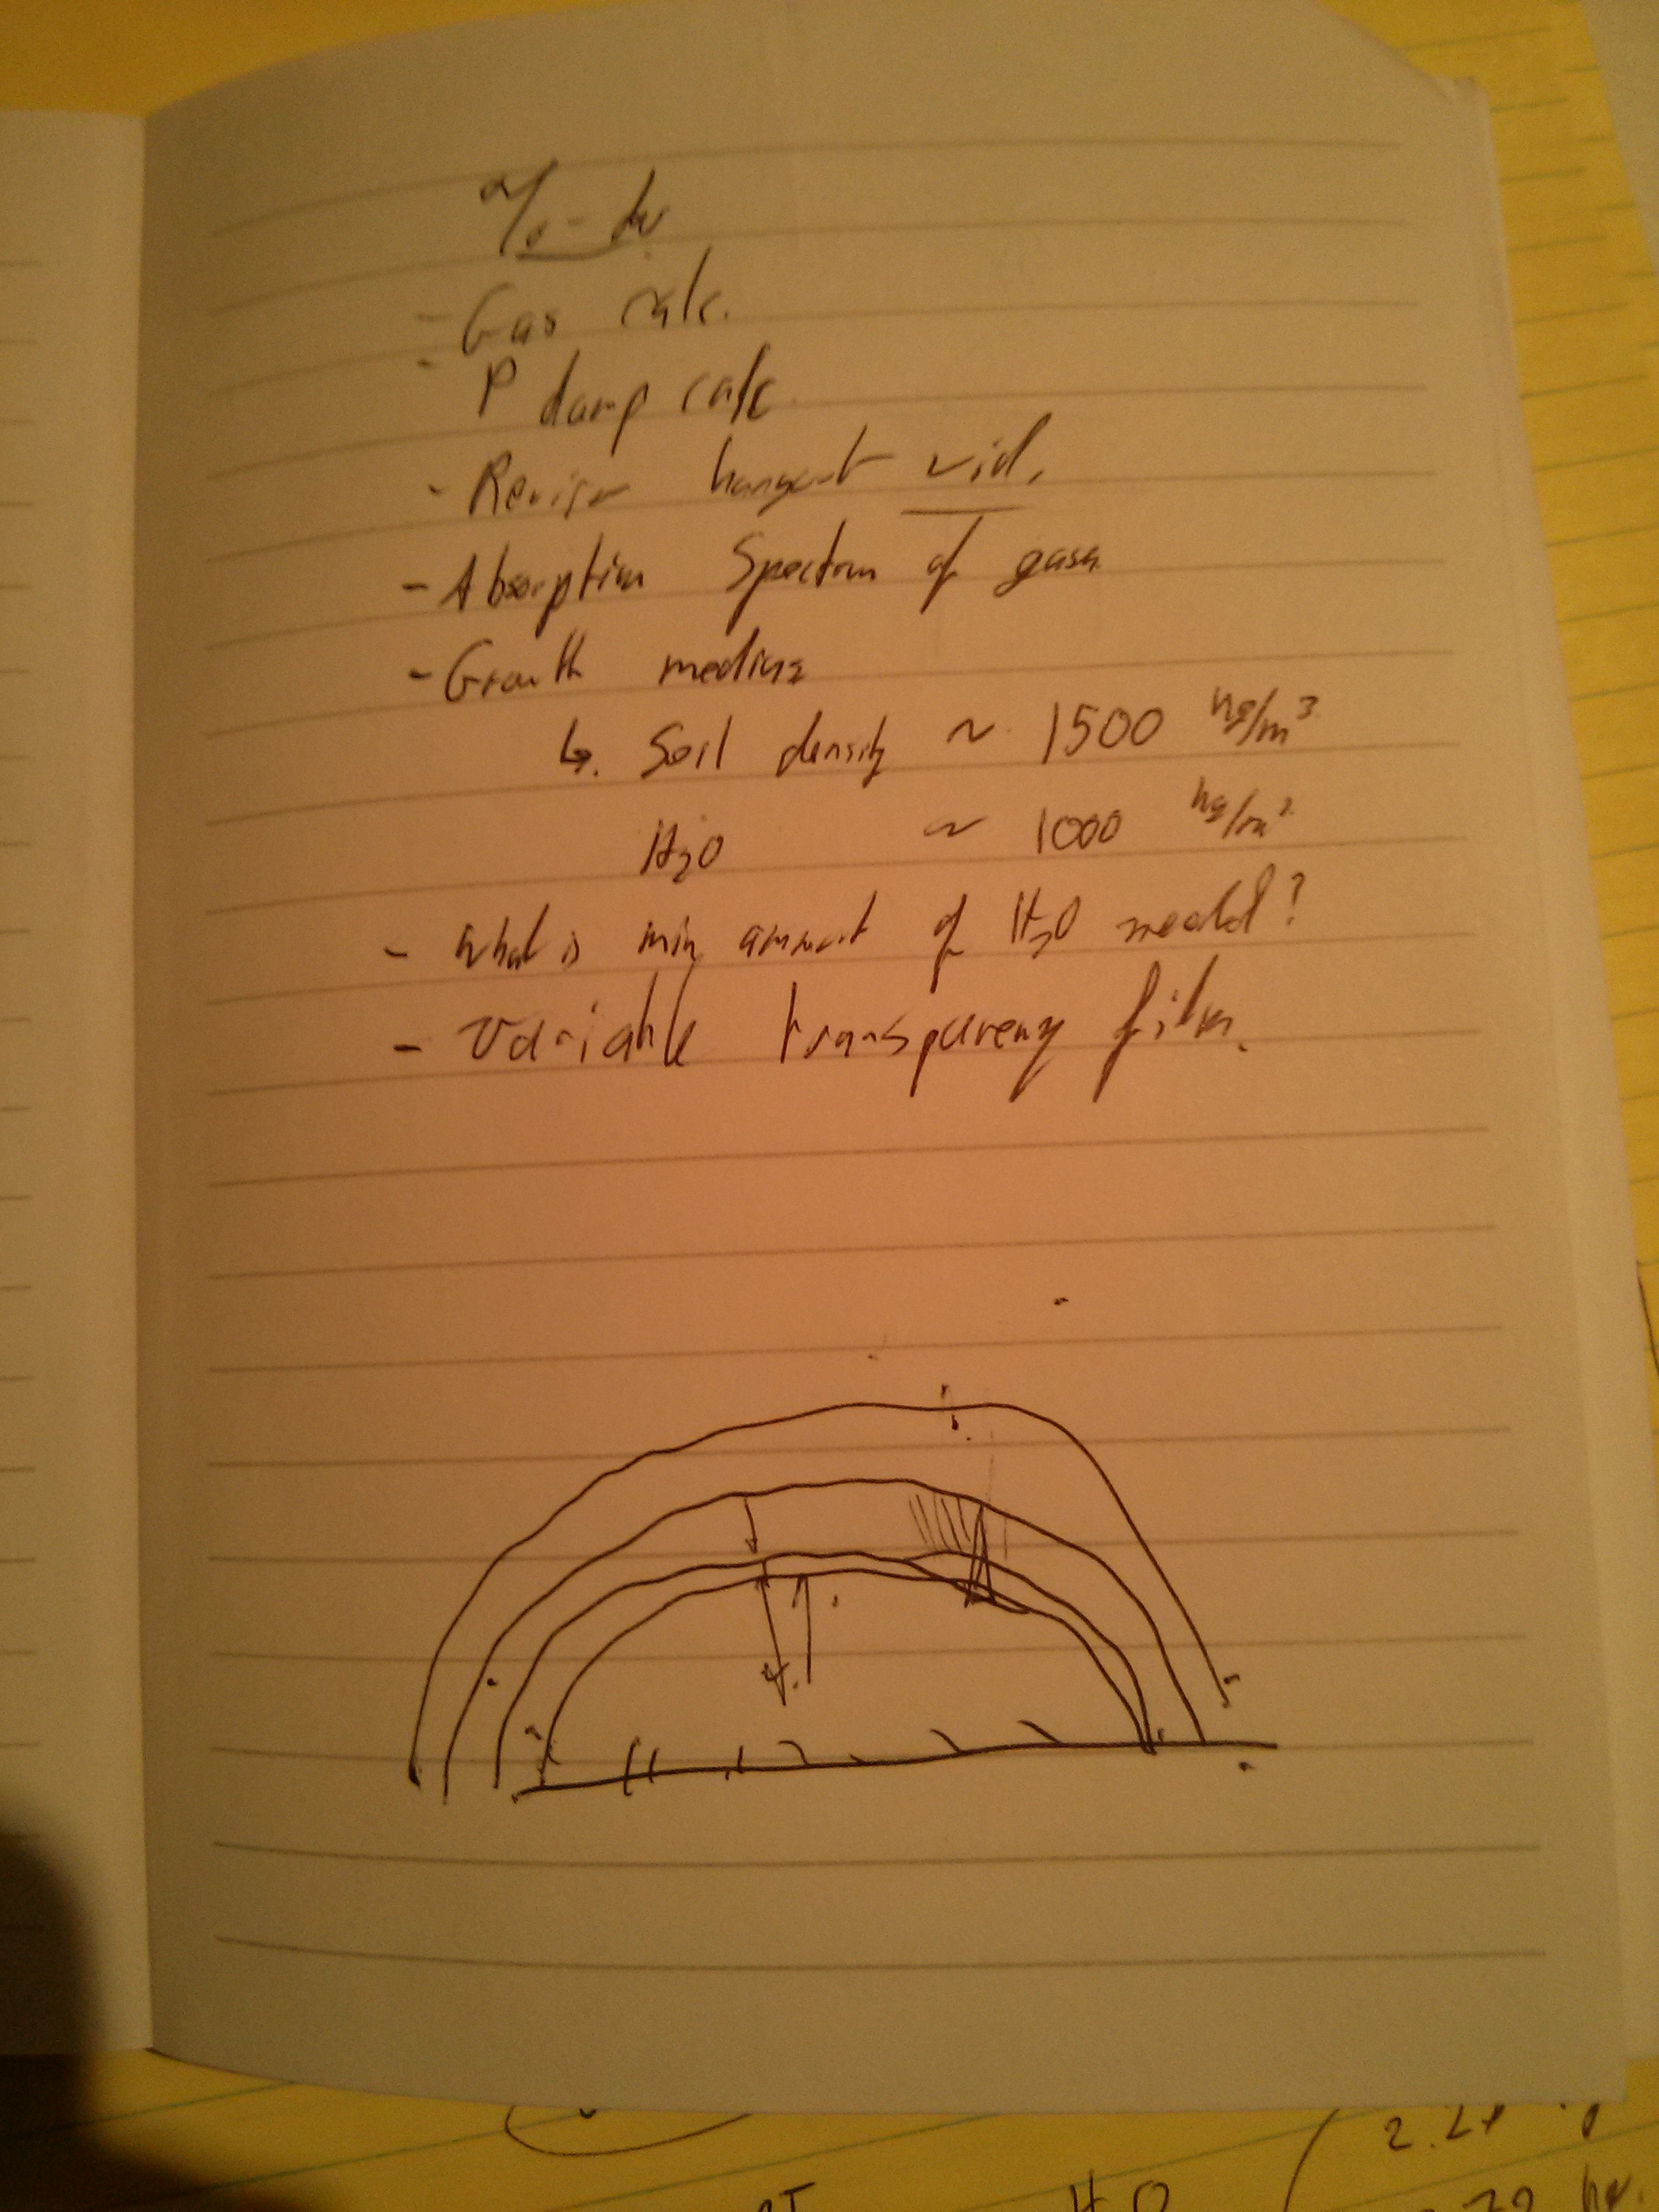 To-do
- Gas calc.
- P damp calc.
- Review hangout vid.
- Absorption Spectrum of gases
- Growth medium
↳ Soil density ~ 1500 kg/m³
H₂O ~ 1000 kg/m³
- What is min amount of H₂O needed?
- Variable transparency film.
H₂O